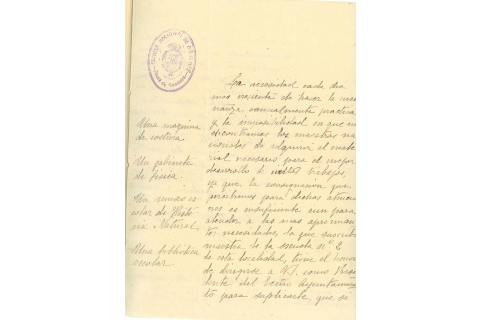 Una maquina
de costura.
Un gabinete
de fisica.
Un museo es-
colar de Histo-
ria Natural.
Una biblioteca
escolar.
La necesidad cada dia
mas de hacer la ense-
ñanza manualmente practica
y la imposibilidad en que nos
encontramos los maestros na-
cionales de adquirir el mate-
rial necesario para el mejor
desarrollo de estos trabajos,
ya que la consignacion que
percibimos para dichas atencio-
nes es insuficiente aun para
atender a las mas apremian-
tes necesidades, la que suscribe
maestra de la escuela nº 2
de esta localidad, tiene el honor
de dirigirse a V.S. como Presi-
dente del Excmo Ayuntamien-
to para suplicarle, que se